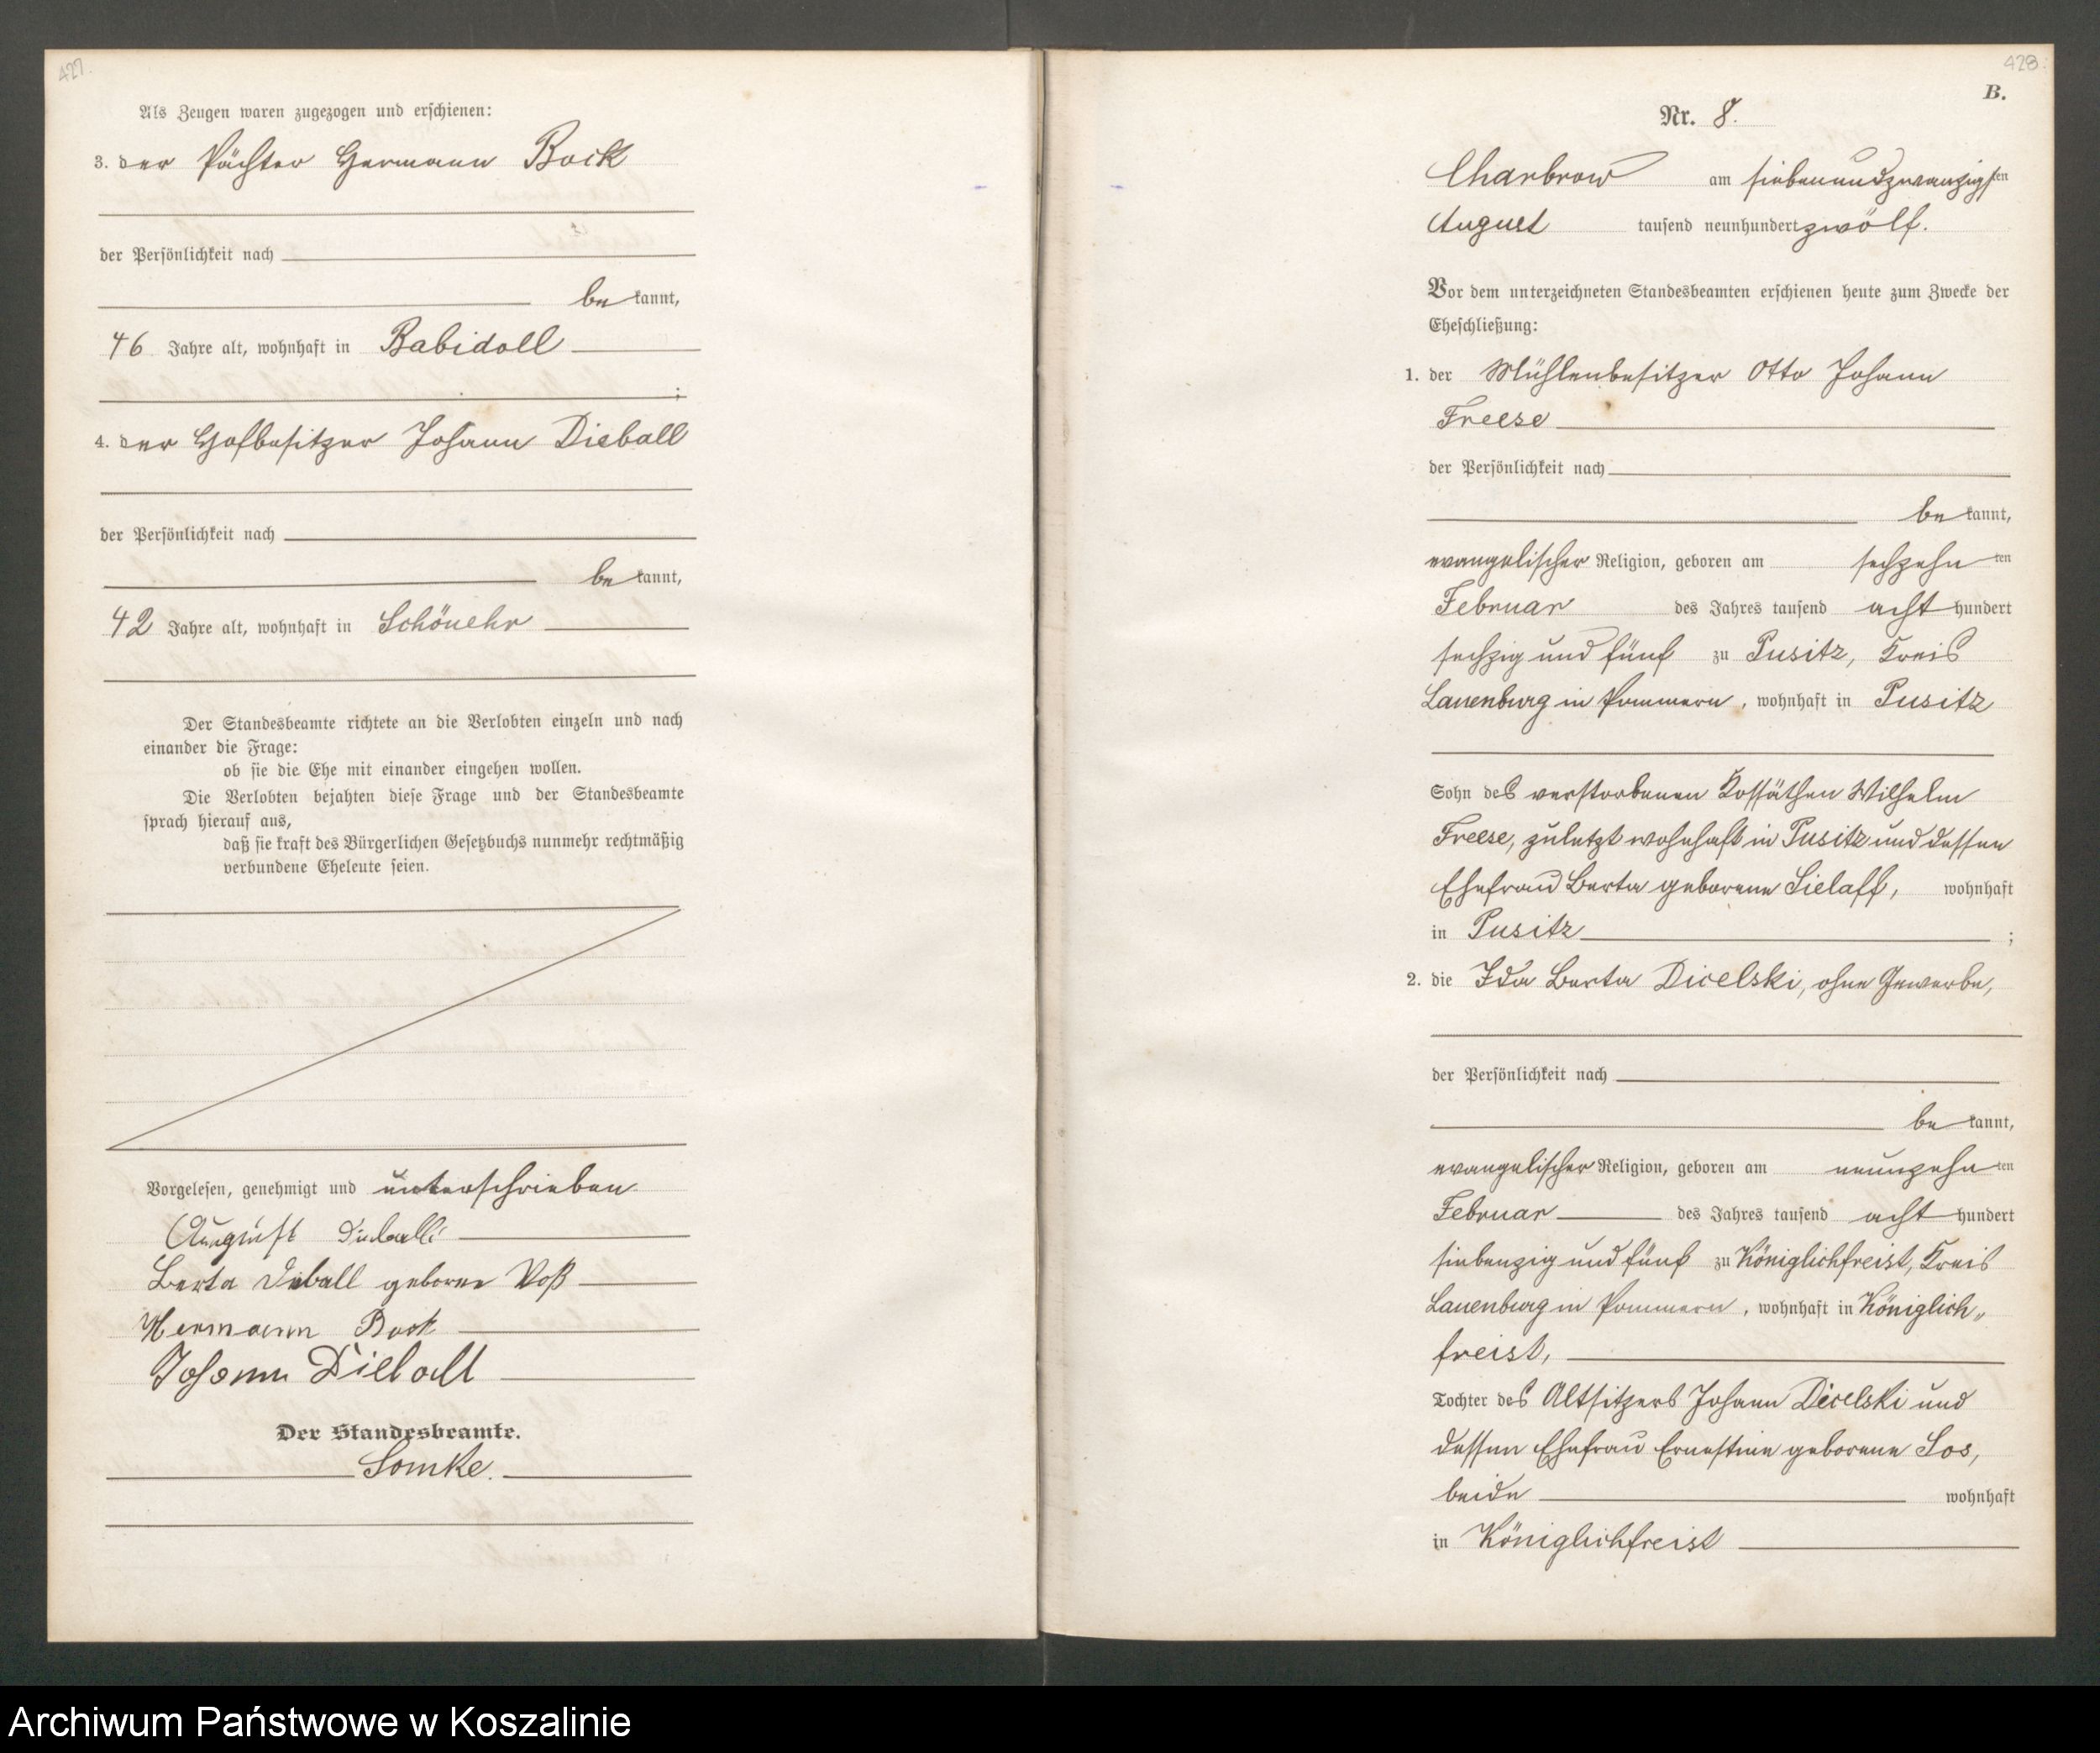 427.
Als Zeugen waren zugezogen und erschienen:
3. der Pächter Hermann Bock
der Persönlichkeit nach
be kannt,
46 Jahre alt, wohnhaft in Babidoll
;
4. der Hofbesitzer Johann Dieball
der Persönlichkeit nach
be kannt,
42 Jahre alt, wohnhaft in Schönehr
Der Standesbeamte richtete an die Verlobten einzeln und nach
einander die Frage:
ob sie die Ehe mit einander eingehen wollen.
Die Verlobten bejahten diese Frage und der Standesbeamte
sprach hierauf aus,
daß sie kraft des Bürgerlichen Gesetzbuchs nunmehr rechtmäßig
verbundene Eheleute seien.
Vorgelesen, genehmigt und unterschrieben
August Dieball
Berta Dieball geborene Voß
Hermann Bock
Johann Dieball
Der Standesbeamte.
Somke.
428.
B.
Nr. 8.
Charbrow am siebenundzwanzigsten
August tausend neunhundert zwölf.
Vor dem unterzeichneten Standesbeamten erschienen heute zum Zwecke der
Eheschließung:
1. der Mühlenbesitzer Otto Johann
Freese
der Persönlichkeit nach
be kannt,
evangelischer Religion, geboren am sechzehn ten
Februar des Jahres tausend acht hundert
sechzig und fünf zu Pusitz, Kreis
Lauenburg in Pommern, wohnhaft in Pusitz
Sohn des verstorbenen Kossäthen Wilhelm
Freese, zuletzt wohnhaft in Pusitz und dessen
Ehefrau Berta geborene Sielaff, wohnhaft
in Pusitz ;
2. die Ida Berta Dicelski, ohne Gewerbe,
der Persönlichkeit nach
be kannt,
evangelischer Religion, geboren am neunzehn ten
Februar des Jahres tausend acht hundert
siebenzig und fünf zu Königlichfreist, Kreis
Lauenburg in Pommern, wohnhaft in Königlich„
freist,
Tochter des Altsitzers Johann Dicelski und
dessen Ehefrau Ernestine geborene Sos,
beide wohnhaft
in Königlichfreist
Archiwum Państwowe w Koszalinie